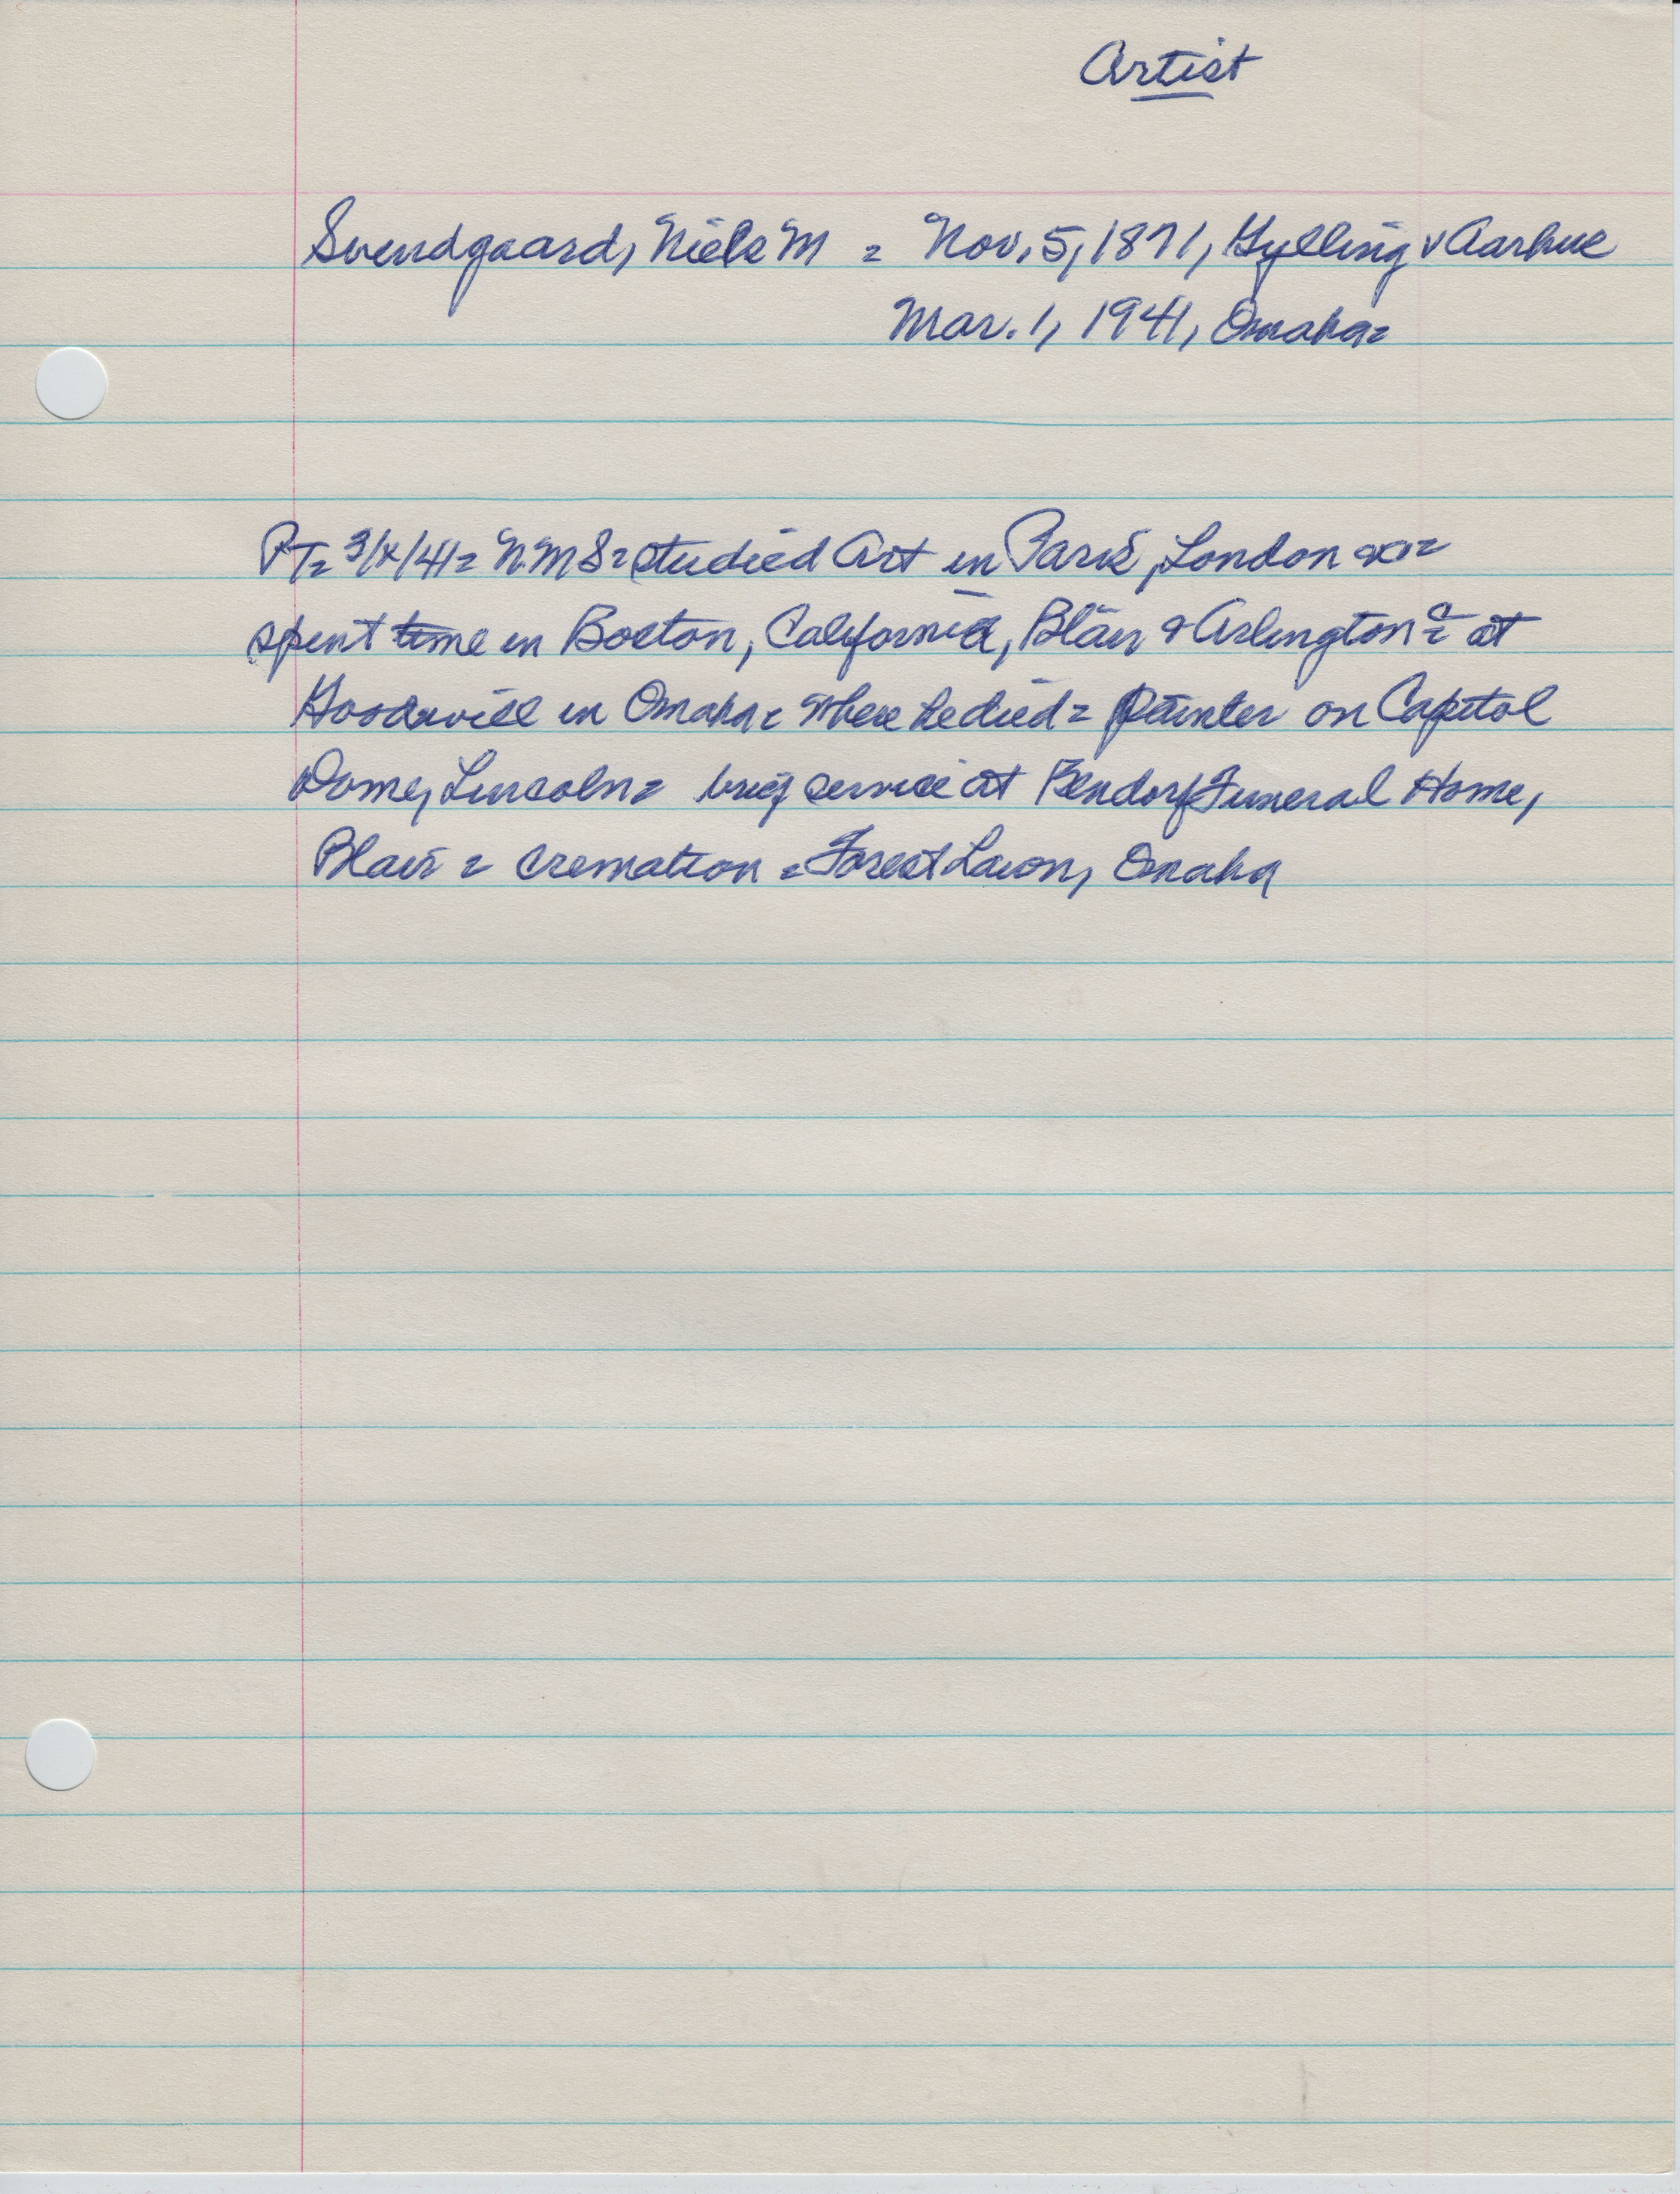 Artist
Svendgaard, Niels M = Nov. 5, 1871, Gylling v Aarhus
Mar. 1, 1941, Omaha=
PT= 3/x/41= N.M.S= studied Art in Paris, London =
spent time in Boston, California, Blair & Arlington = at
Goodwill in Omaha = where he died = Painter on Capitol
Dome, Lincoln = brief service at Bendorf Funeral Home,
Blair = cremation = Forest Lawn, Omaha